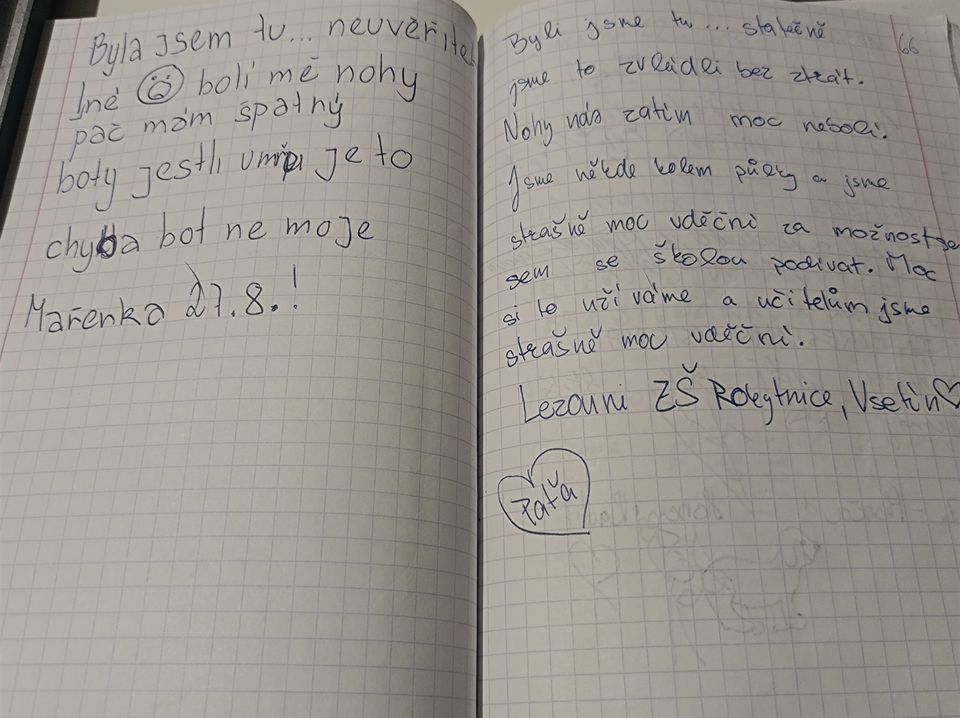 Byla jsem tu... neuvěřitel
lné bolí mě nohy
pač mám špatný
boty jestli umřu je to
chyba bot ne moje
Mařenka 27.8.!
66
Byli jsme tu... statečně
jsme to zvládli bez ztrát.
Nohy nás zatím moc nebolí.
Jsme někde kolem půlky a jsme
strašně moc vděčni za možnost se
sem se školou podívat. Moc
si to užíváme a učitelům jsme
strašně moc vděční.
Lezouni ZŠ Rokytnice, Vsetín
Paťa